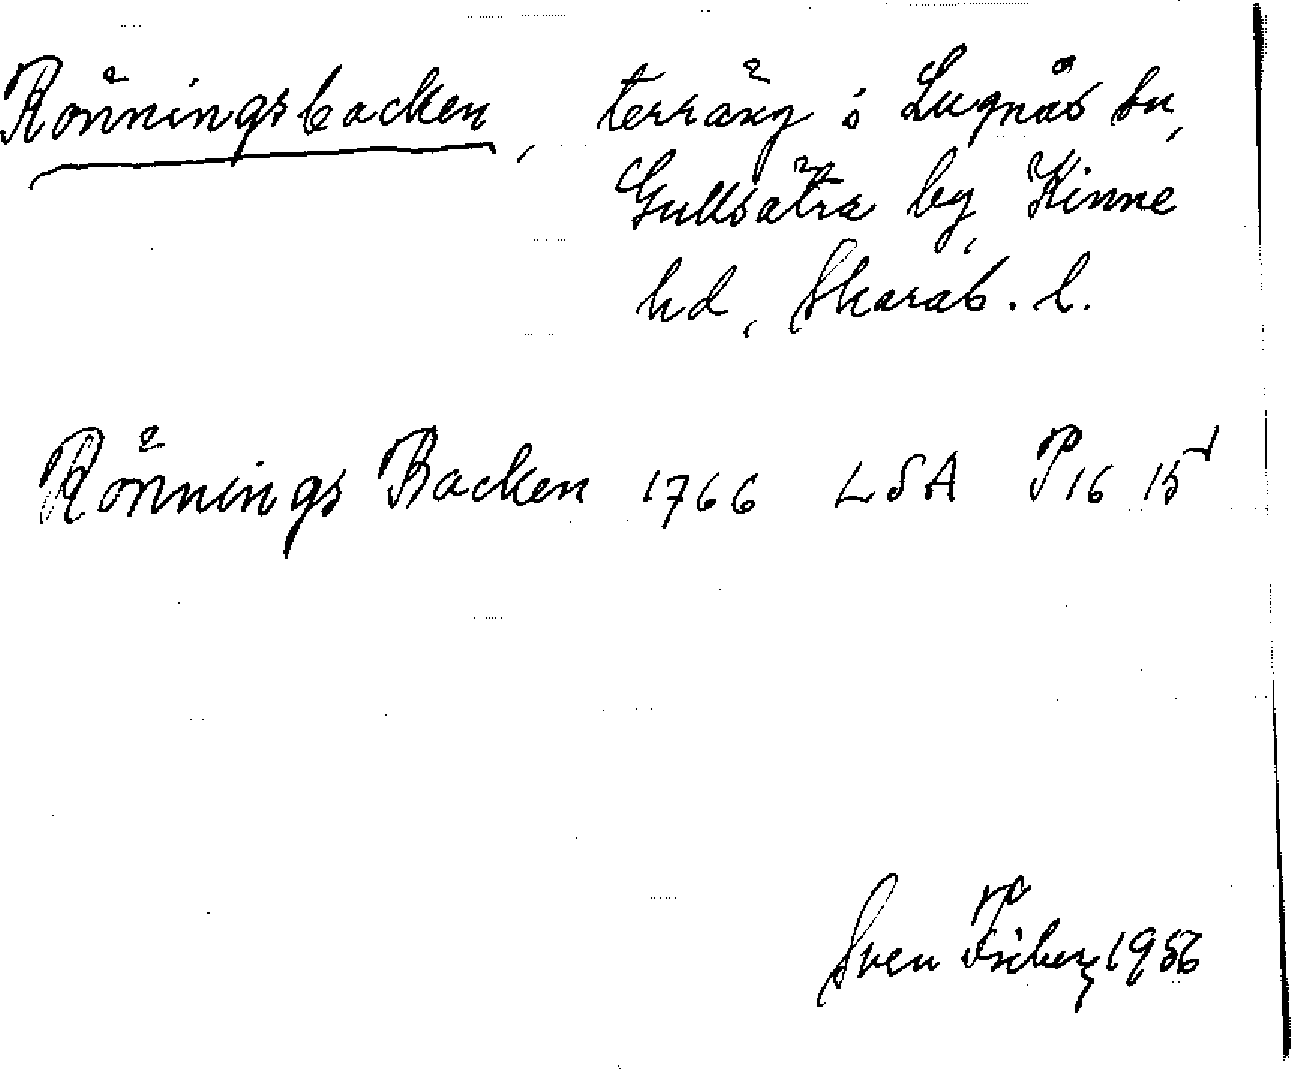 Rönningsbacken, terräng i Lugnås sn,
Gullsätra by, Kinne
hd, Skarab. l.
Rönnings Backen 1766 LSA P16 15¹
Sven Friberg 1956